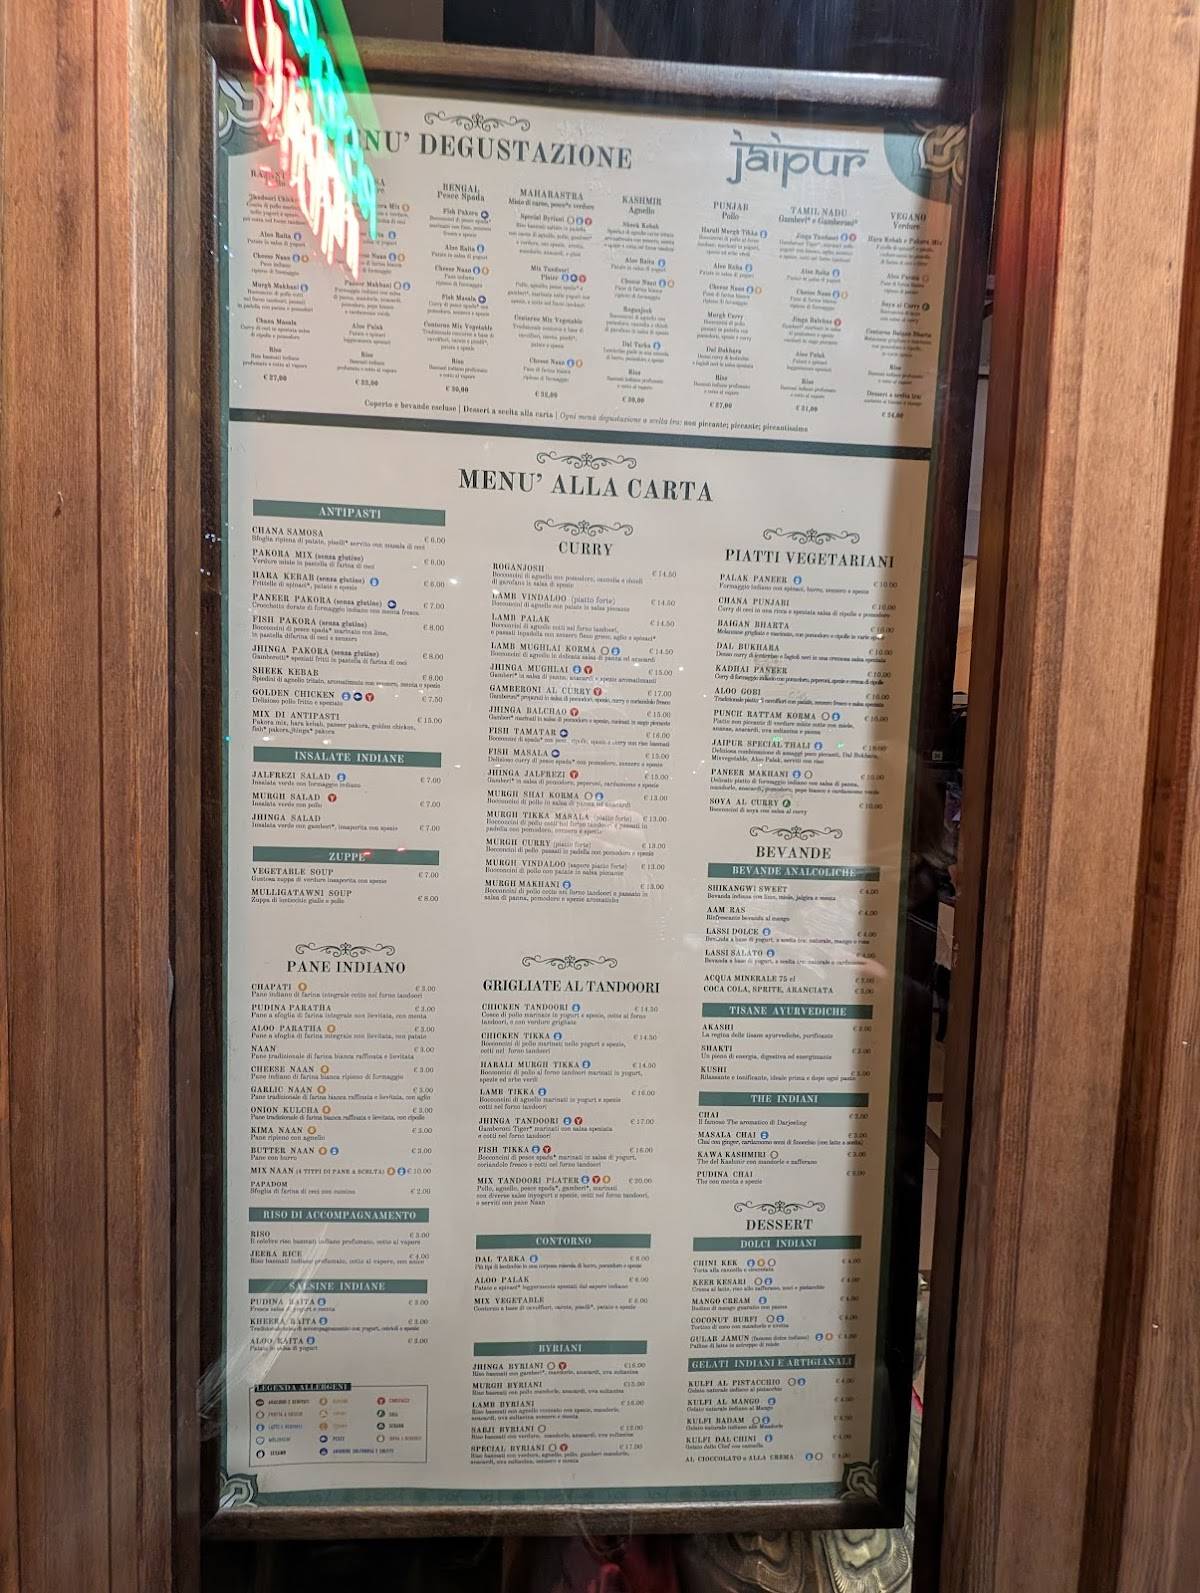 MENU' DEGUSTAZIONE
jaipur
BENGAL
Pesce Spada
Fish Pakora
Aloo Raita
Patate in salsa di yogurt
Cheese Naan
Fish Masala
Contorno Mix Vegetable
Riso
€ 30,00
MAHARASTRA
Special Byriani
Mix Tandoori
Plater
Contorno Mix Vegetable
Cheese Naan
KASHMIR
Agnello
Sheek Kebab
Aloo Raita
Cheese Naan
Roganjosh
Dal Tarka
Riso
€ 30,00
PUNJAB
Pollo
Harali Murgh Tikka
Aloo Raita
Cheese Naan
Murgh Curry
Dal Bukhara
Riso
€ 27,00
TAMIL NADU
Gamberi* e Gamberoni*
Jinga Tandoori
Aloo Raita
Cheese Naan
Jinga Balchao
Aloo Palak
Riso
€ 31,00
VEGANO
Verdure
Hara Kebab e Pakora Mix
Soya al Curry
Riso
Coperto e bevande escluse | Dessert a scelta alla carta | Ogni menù degustazione a scelta tra: non piccante; piccante; piccantissimo
MENU' ALLA CARTA
ANTIPASTI
CHANA SAMOSA € 6.00
Sfoglia ripiena di patate, piselli* servito con masala di ceci
PAKORA MIX (senza glutine) € 6.00
Verdure miste in pastella di farina di ceci
HARA KEBAB (senza glutine) € 6.00
Frittelle di spinaci*, patate e spezie
PANEER PAKORA (senza glutine) € 7.00
Crocchette dorate di formaggio indiano con menta fresca
FISH PAKORA (senza glutine) € 8.00
Bocconcini di pesce spada* marinato con lime,
in pastella difarina di ceci e zenzero
JHINGA PAKORA (senza glutine) € 8.00
Gamberetti* speziati fritti in pastella di farina di ceci
SHEEK KEBAB € 8.00
Spiedini di agnello tritato, aromatizzato con zenzero, menta e spezie
GOLDEN CHICKEN € 7.50
Delizioso pollo fritto e speziato
MIX DI ANTIPASTI € 15.00
Pakora mix, hara kebab, paneer pakora, golden chicken,
fish* pakora, jhinga* pakora
INSALATE INDIANE
JALFREZI SALAD € 7.00
Insalata verde con formaggio indiano
MURGH SALAD € 7.00
Insalata verde con pollo
JHINGA SALAD € 7.00
Insalata verde con gamberi*, insaporita con spezie
ZUPPE
VEGETABLE SOUP € 7.00
Gustosa zuppa di verdure insaporita con spezie
MULLIGATAWNI SOUP € 8.00
Zuppa di lenticchie gialle e pollo
PANE INDIANO
CHAPATI € 3.00
Pane indiano di farina integrale cotto nel forno tandoori
PUDINA PARATHA € 3.00
Pane a sfoglia di farina integrale non lievitata, con menta
ALOO PARATHA € 3.00
Pane a sfoglia di farina integrale non lievitata, con patate
NAAN € 3.00
Pane tradizionale di farina bianca raffinata e lievitata
CHEESE NAAN € 3.00
Pane indiano di farina bianca ripieno di formaggio
GARLIC NAAN € 3.00
Pane tradizionale di farina bianca raffinata e lievitata, con aglio
ONION KULCHA € 3.00
Pane tradizionale di farina bianca raffinata e lievitata, con cipolle
KIMA NAAN € 3.00
Pane ripieno con agnello
BUTTER NAAN € 3.00
Pane con burro
MIX NAAN (4 TITPI DI PANE A SCELTA) € 10.00
PAPADOM € 2.00
Sfoglia di farina di ceci con cumino
RISO DI ACCOMPAGNAMENTO
RISO € 3.00
Il celebre riso basmati indiano profumato, cotto al vapore
JEERA RICE € 4.00
Riso basmati indiano profumato, cotto al vapore, con anice
SALSINE INDIANE
PUDINA RAITA € 3.00
Fresca salsa di yogurt e menta
KHEERA RAITA € 3.00
Tradizionale salsa di accompagnamento con yogurt, cetrioli e spezie
ALOO RAITA € 3.00
Patate in salsa di yogurt
LEGENDA ALLERGENI
CURRY
ROGANJOSH € 14.50
Bocconcini di agnello con pomodoro, cannella e chiodi
di garofano in salsa di spezie
LAMB VINDALOO (piatto forte) € 14.50
Bocconcini di agnello con patate in salsa piccante
LAMB PALAK € 14.50
Bocconcini di agnello cotti nel forno tandoori,
e passati inpadella con zenzero fieno greco, aglio e spinaci*
LAMB MUGHLAI KORMA € 14.50
Bocconcini di agnello in delicata salsa di panna ed anacardi
JHINGA MUGHLAI € 15.00
Gamberi* in salsa di panna, anacardi e spezie aromatizzanti
GAMBERONI AL CURRY € 17.00
Gamberoni* preparati in salsa di pomodori, spezie, curry e coriandolo fresco
JHINGA BALCHAO € 15.00
Gamberi* marinati in salsa di pomodoro e spezie, cucinati in sugo piccante
FISH TAMATAR € 16.00
FISH MASALA € 15.00
Delizioso curry di pesce spada* con pomodoro, zenzero e spezie
JHINGA JALFREZI € 15.00
Gamberi* in salsa di pomodoro, peperoni, cardamomo e spezie
MURGH SHAI KORMA € 13.00
Bocconcini di pollo in salsa di panna ed anacardi
MURGH TIKKA MASALA (piatto forte) € 13.00
Bocconcini di pollo cotti nel forno tandoori e passati in
padella con pomodoro, zenzero e spezie
MURGH CURRY (piatto forte) € 13.00
Bocconcini di pollo passati in padella con pomodoro e spezie
MURGH VINDALOO (sapore piatto forte) € 13.00
Bocconcini di pollo con patate in salsa piccante
MURGH MAKHANI € 13.00
Bocconcini di pollo cotto nel forno tandoori e passato in
salsa di panna, pomodoro e spezie aromatiche
GRIGLIATE AL TANDOORI
CHICKEN TANDOORI € 14.50
Cosce di pollo marinate in yogurt e spezie, cotte al forno
tandoori, e con verdure grigliate
CHICKEN TIKKA € 14.50
Bocconcini di pollo marinati nello yogurt e spezie,
cotti nel forno tandoori
HARALI MURGH TIKKA € 14.50
Bocconcini di pollo al forno tandoori marinati in yogurt,
spezie ed erbe verdi
LAMB TIKKA € 16.00
Bocconcini di agnello marinati in yogurt e spezie
cotti nel forno tandoori
JHINGA TANDOORI € 17.00
Gamberoni Tiger* marinati con salsa speziata
e cotti nel forno tandoori
FISH TIKKA € 16.00
Bocconcini di pesce spada* marinati in salsa di yogurt,
coriandolo fresco e cotti nel forno tandoori
MIX TANDOORI PLATER € 20.00
Pollo, agnello, pesce spada*, gamberi*, marinati
con diverse salse inyogurt e spezie, cotti nel forno tandoori,
e serviti con pane Naan
CONTORNO
DAL TARKA € 6.00
ALOO PALAK € 6.00
Patate e spinaci* leggermente speziati dal sapore indiano
MIX VEGETABLE € 6.00
Contorno a base di cavolfiori, carote, piselli*, patate e spezie
BYRIANI
JHINGA BYRIANI €16.00
Riso basmati con gamberi*, mandorle, anacardi, uva sultanina
MURGH BYRIANI €15.00
Riso basmati con pollo mandorle, anacardi, uva sultanina
LAMB BYRIANI € 16.00
Riso basmati con agnello cucinato con spezie, mandorle,
anacardi, uva sultanina zenzero e menta
SABJI BYRIANI € 13.00
Riso basmati con verdure, mandorle, anacardi, uva sultanina
SPECIAL BYRIANI € 17.00
Riso basmati con verdure, agnello, pollo, gamberi mandorle
anacardi, uva sultanina, zenzero e menta
PIATTI VEGETARIANI
PALAK PANEER € 10.00
Formaggio indiano con spinaci, burro, zenzero e spezie
CHANA PUNJABI € 10.00
Curry di ceci in una ricca e speziata salsa di cipolle e pomodoro
BAIGAN BHARTA € 10.00
Melanzane grigliate e macinate, con pomodoro e cipolle in varie spezie
DAL BUKHARA € 10.00
Denso curry di lenticchie e fagioli neri in una cremosa salsa speziata
KADHAI PANEER € 10.00
Curry di formaggio indiano con pomodoro, peperoni, spezie e crema di cipolle
ALOO GOBI € 10.00
Tradizionale piatto di cavolfiori con patate, zenzero fresco e salsa speziata
PUNCH RATTAM KORMA € 10.00
Piatto non piccante di verdure miste cotte con miele,
ananas, anacardi, uva sultanina e panna
JAIPUR SPECIAL THALI
Deliziosa combinazione di assaggi poco piccanti, Dal Bukhara,
Mixvegetable, Aloo Palak, serviti con riso
PANEER MAKHANI € 10.00
Delicato piatto di formaggio indiano con salsa di panna,
mandorle, anacardi, pomodoro, pepe bianco e cardamomo verde
SOYA AL CURRY € 10.00
Bocconcini di soya con salsa al curry
BEVANDE
BEVANDE ANALCOLICHE
SHIKANGWI SWEET € 4.00
Bevanda indiana con lime, miele, jalgira e menta
AAM RAS € 4.00
Rinfrescante bevanda al mango
LASSI DOLCE € 4.00
Bevanda a base di yogurt, a scelta tra: naturale, mango o rosa
LASSI SALATO € 4.00
Bevanda a base di yogurt, a scelta tra: naturale o cardamomo
ACQUA MINERALE 75 cl
COCA COLA, SPRITE, ARANCIATA
TISANE AYURVEDICHE
AKASHI
La regina delle tisane ayurvediche, purificante
SHAKTI
Un pieno di energia, digestiva ed energizzante
KUSHI
Rilassante e tonificante, ideale prima e dopo ogni pasto
THE INDIANI
CHAI
Il famoso The aromatico di Darjeeling
MASALA CHAI € 3.00
Chai con ginger, cardamomo semi di finocchio (con latte a scelta)
KAWA KASHMIRI
The del Kashmir con mandorle e zafferano
PUDINA CHAI
The con menta e spezie
DESSERT
DOLCI INDIANI
CHINI KEK € 4.00
Torta alla cannella e cioccolata
KEER KESARI € 4.00
Crema al latte, riso allo zafferano, noci e pistacchio
MANGO CREAM € 4.00
Budino di mango guarnito con panna
COCONUT BURFI € 4.00
Tortino di coco con mandorle e uvetta
GULAB JAMUN (famoso dolce indiano) € 4.00
Palline di latte in sciroppo di miele
GELATI INDIANI E ARTIGIANALI
KULFI AL PISTACCHIO € 4.00
Gelato naturale indiano al pistacchio
KULFI AL MANGO € 4.00
Gelato naturale indiano al Mango
KULFI BADAM
Gelato naturale indiano alle Mandorle
KULFI DAL CHINI € 4.00
Gelato dello Chef con cannella
AL CIOCCOLATO o ALLA CREMA € 4.00